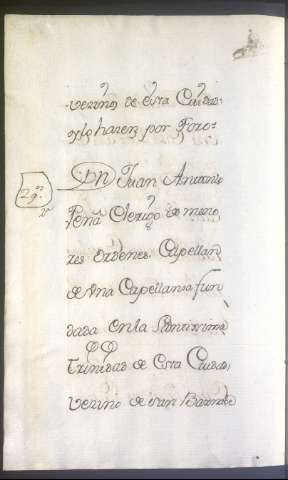 vecinos de esta Ciudad
y lo hacen por Foro=
29
Dn Juan Antonio
Peña Clerigo de meno
res ordenes, Capellan
de Vna Capellania fun
dada en la Santissima
Trinidad de esta Ciudad,
vecino de san Bernabe